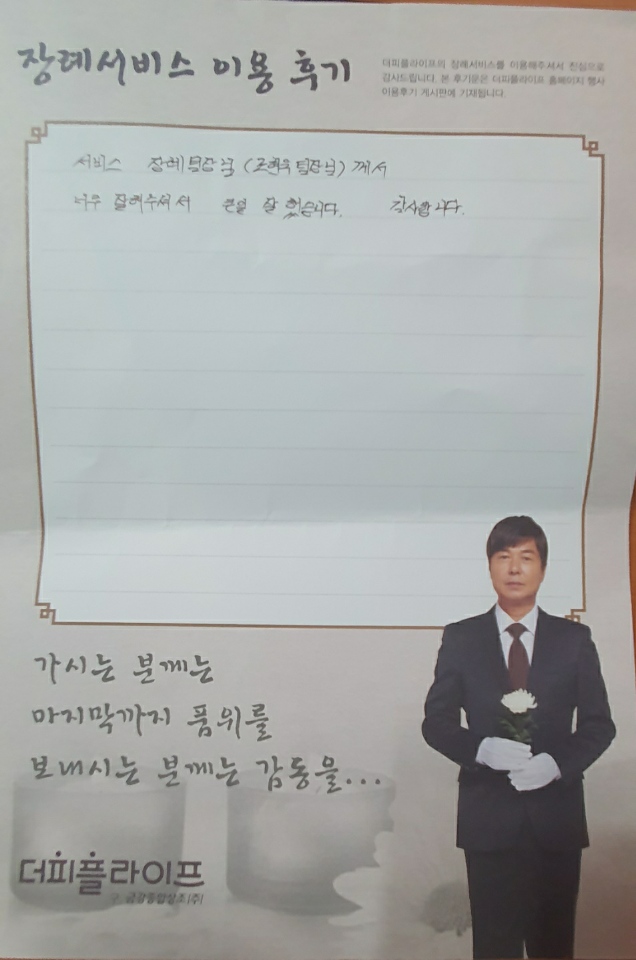 장례서비스 이용 후기
더피플라이프의 장례서비스를 이용해주셔서 진심으로
감사드립니다. 본 후기문은 더피플라이프 홈페이지 행사
이용후기 게시판에 기재됩니다.
서비스 장례팀장님 (조현우 팀장님) 께서
너무 잘해주셔서 큰일 잘 치렀습니다. 감사합니다.
가시는 분께는
마지막까지 품위를
보내시는 분께는 감동을...
더피플라이프
구. 금강종합상조(주)